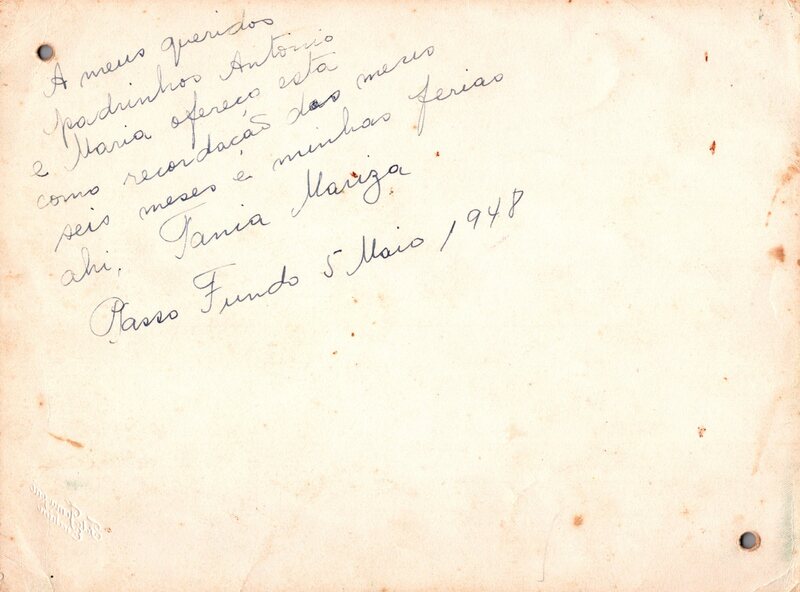 A meus queridos
padrinhos Antonio
e Maria ofereço esta
como recordação dos meus
seis meses e minhas ferias
ahi. Tania Mariza
Passo Fundo 5 Maio 1948